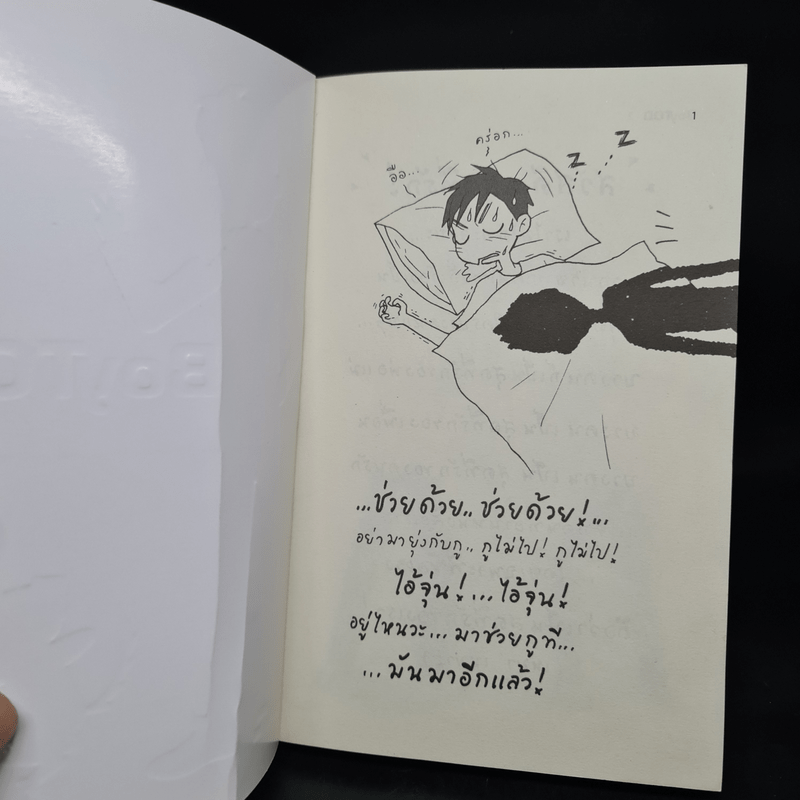 1
คร่อก...
อือ...
z
z
...ช่วยด้วย..ช่วยด้วย!...
อย่ามายุ่งกับกู.. กูไม่ไป! กูไม่ไป!
ไอ้จุ่น!...ไอ้จุ่น!
อยู่ไหนวะ...มาช่วยกูที...
...มันมาอีกแล้ว!